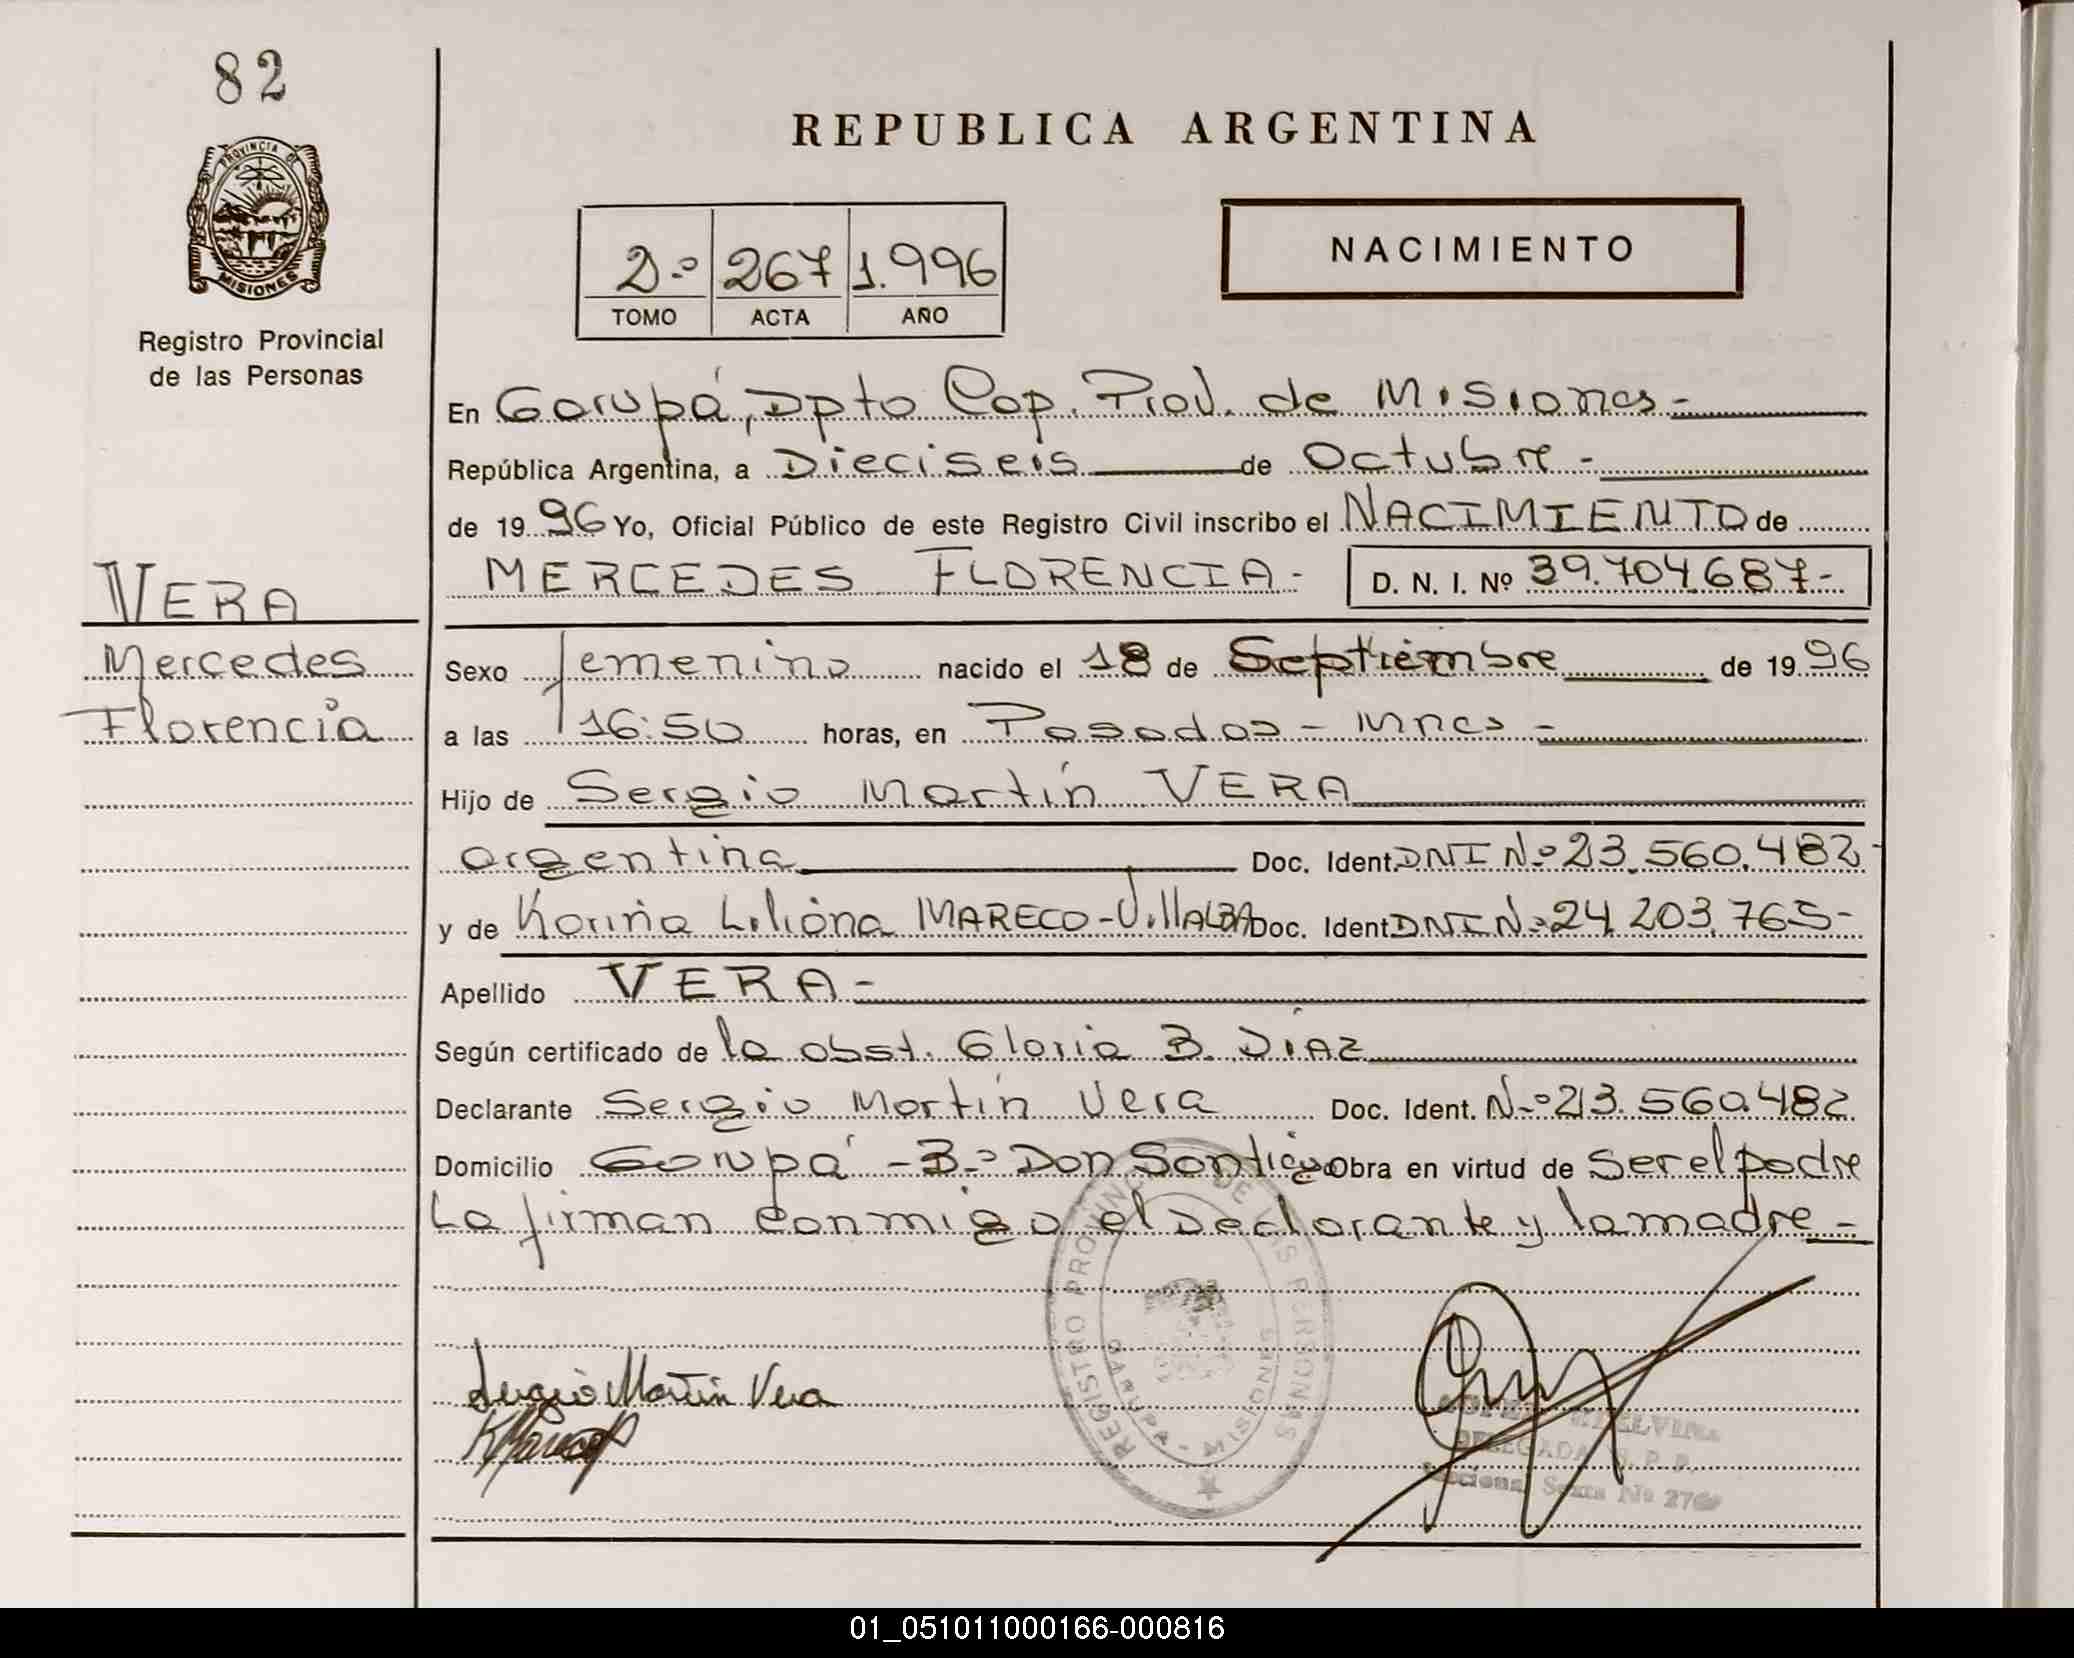 82
REPUBLICA ARGENTINA
PROVINCIA DE
MISIONES
Registro Provincial
de las Personas
2.º 267 1.996
TOMO ACTA AÑO
NACIMIENTO
En Garupá, Dpto Cap. Prov. de Misiones-
República Argentina, a Dieciseis de Octubre -
de 19 96 Yo, Oficial Público de este Registro Civil inscribo el NACIMIENTO de
MERCEDES FLORENCIA- D. N. I. Nº 39.704.687-
VERA
Mercedes
Florencia
Sexo femenino nacido el 18 de Septiembre de 19 96
a las 16:50 horas, en Posadas - Mnes -
Hijo de Sergio Martín VERA
argentina Doc. Ident. DNI N.º 23.560.482-
y de Karina Liliana MARECO-VillALBA Doc. Ident DNI N.º 24.203.765-
Apellido VERA-
Según certificado de la obst. Gloria B. DíAz
Declarante Sergio Martín Vera Doc. Ident. N.º 23.560.482
Domicilio Garupá - B.º Don Santiago Obra en virtud de ser el padre
La firman conmigo el Declarante y la madre-
REGISTRO PROVINCIAL DE LAS PERSONAS
GARUPA - MISIONES
Sergio Martín Vera
KMareco
ETELVINA
DELEGADA R. P. P.
Seccional Sexta Nº 276
01_051011000166-000816